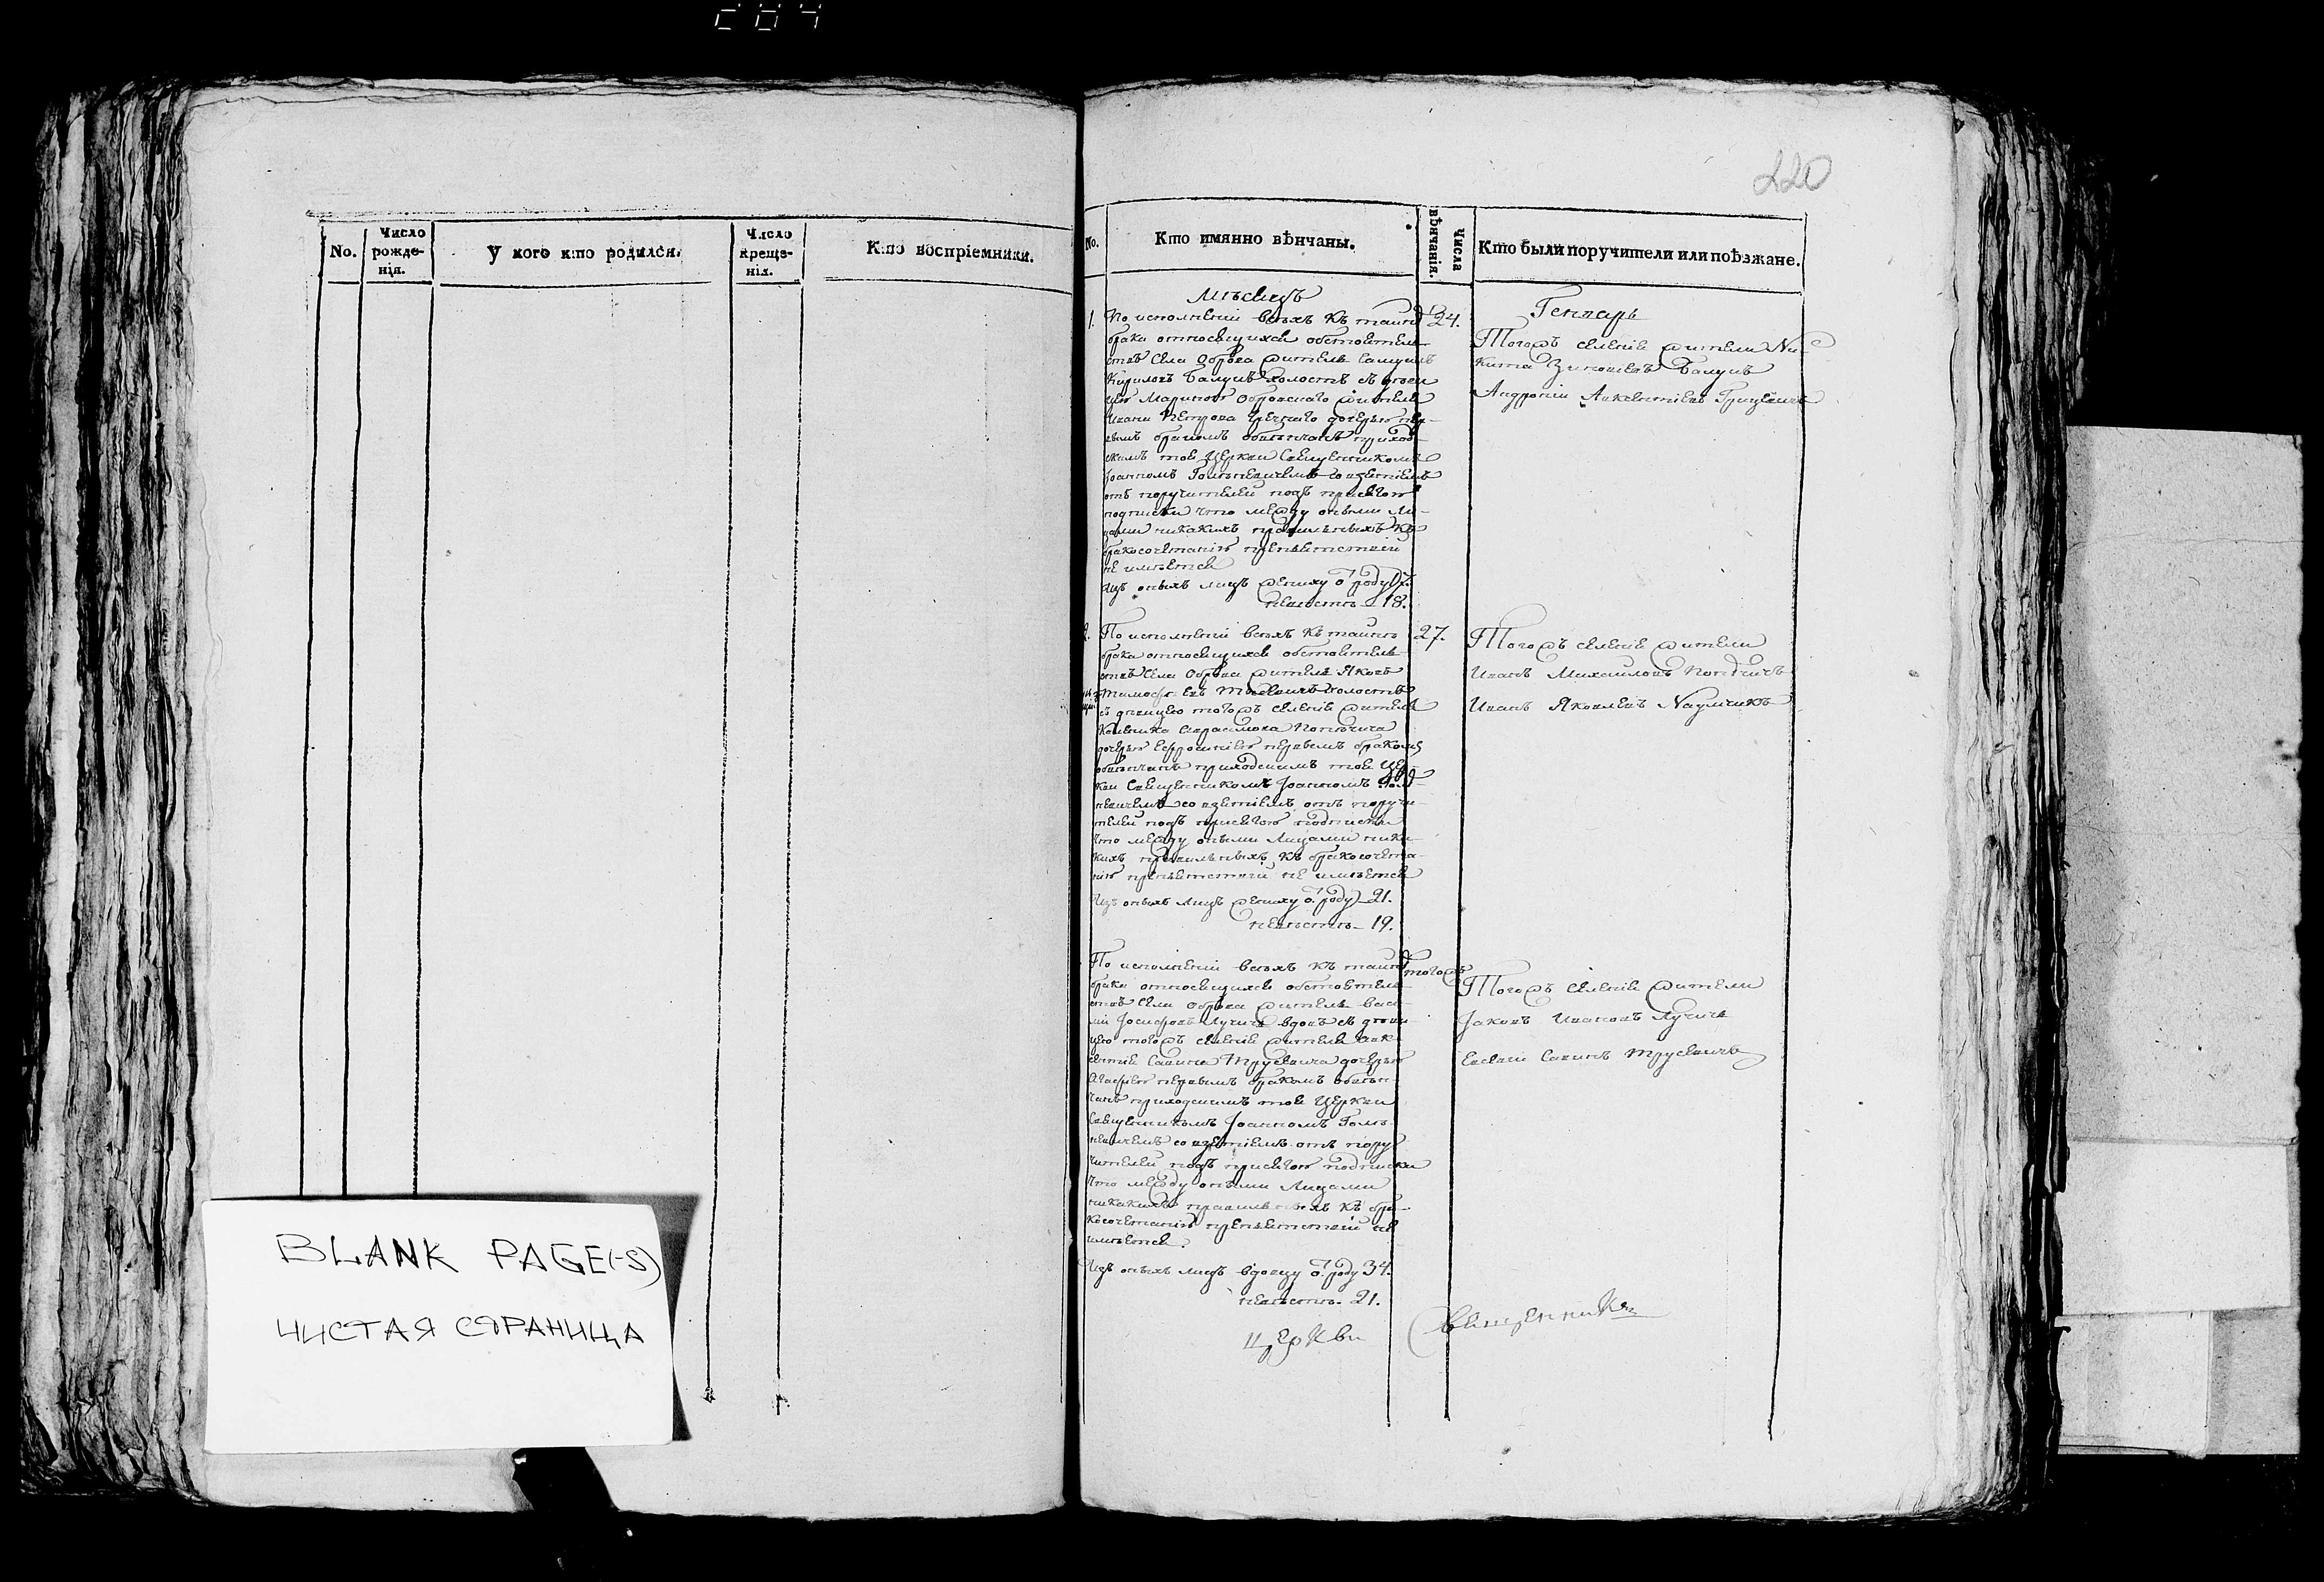 220
No.
Число рожденія.
У кого кто родился.
Число крещенія.
Кто воспріемники.
No.
Кто имянно вѣнчаны.
Числа вѣнчанія.
Кто были поручители или поѣзжане.
Мѣсяцъ
Генварь
1.
По исполненіи всѣхъ къ таинѣ
24.
брака относящихся обстоятель
ствъ Села Оброва житель Самуилъ
Кириловъ Балупъ холостъ съ девы
цею Мариною Обровскаго жителя
Ивана Петрова дочерью пер-
вымъ бракомъ обвѣнчанъ приход
скимъ тоя Церкви Священникомъ
Іоанномъ со взятіемъ
отъ поручителей подъ присягою
подписки что между оными Ли-
цами никакихъ правильныхъ къ
бракосочетанію препятствій
не имѣется
Изъ оныхъ лицъ жениху о̃ роду
невѣстѣ 18.
Тогожъ селенія жители Ни-
кита Балупъ
Андроній Авксентіевъ Грицевичъ
2.
По исполненіи всѣхъ къ таинѣ
27.
брака относящихся обстоятель
ствъ Села Оброва житель Яковъ
Тимофѣевъ холостъ
съ девицею тогожъ селенія жителя
дочерью Евфросиніею первымъ бракомъ
обвѣнчанъ приходскимъ тоя Цер
кви Священникомъ Іоанномъ
со взятіемъ отъ поручи-
телей подъ присягою подписки
что между оными Лицами ника-
кихъ правильныхъ къ бракосочета-
нію препятствій не имѣется
Изъ оныхъ лицъ жениху о̃ роду 21.
невѣстѣ 19.
Тогожъ селенія жители
Иванъ Михаиловъ
Иванъ Яковлевъ Наумчикъ
По исполненіи всѣхъ къ таинѣ
тогожъ
брака относящихся обстоятель
ствъ Села Оброва житель Васи
лій Іосифовъ Лучичъ вдовъ съ деви
цею тогожъ селенія жителя Авк
сентія Савина Трусевича дочерью
Агафіею первымъ бракомъ обвѣн
чанъ приходскимъ тоя Церкви
Священникомъ Іоанномъ
со взятіемъ отъ пору
чителей подъ присягою подписки
что между оными Лицами
никакихъ правильныхъ къ бра-
косочетанію препятствій не
имѣется.
Изъ оныхъ лицъ вдовцу о̃ роду 34.
невѣстѣ 21.
Тогожъ селенія жители
Іаковъ Ивановъ Лучичъ
Евсевій Савинъ Трусевичъ
Церкви Священникъ
BLANK PAGE(-S)
ЧИСТАЯ СТРАНИЦА